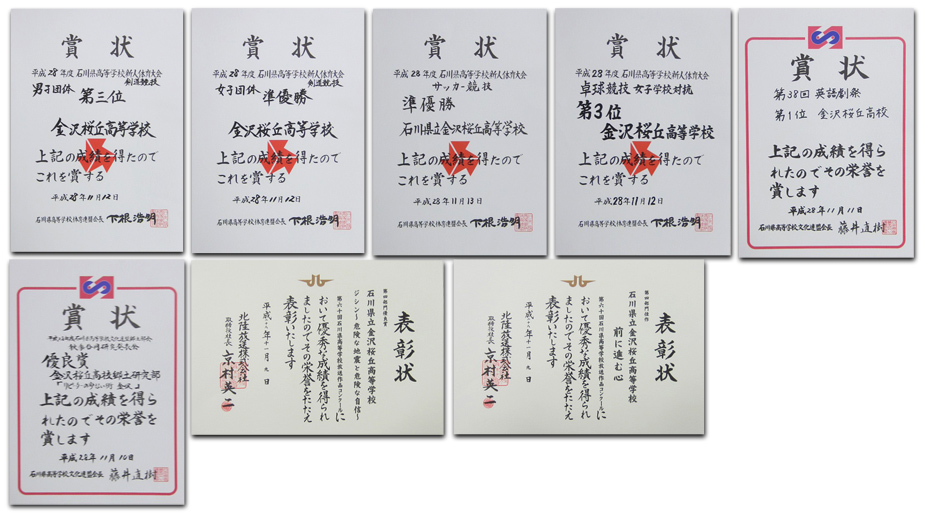 賞 状
平成28年度 石川県高等学校新人体育大会
剣道競技
男子団体 第三位
金沢桜丘高等学校
上記の成績を得たので
これを賞する
平成28年11月12日
石川県高等学校体育連盟会長 下根浩明
賞 状
平成28年度 石川県高等学校新人体育大会
剣道競技
女子団体 準優勝
金沢桜丘高等学校
上記の成績を得たので
これを賞する
平成28年11月12日
石川県高等学校体育連盟会長 下根浩明
賞 状
平成28年度 石川県高等学校新人体育大会
サッカー競技
準優勝
石川県立金沢桜丘高等学校
上記の成績を得たので
これを賞する
平成28年11月13日
石川県高等学校体育連盟会長 下根浩明
賞 状
平成28年度 石川県高等学校新人体育大会
卓球競技 女子学校対抗
第3位
金沢桜丘高等学校
上記の成績を得たので
これを賞する
平成28年11月12日
石川県高等学校体育連盟会長 下根浩明
賞 状
第38回 英語劇祭
第1位 金沢桜丘高校
上記の成績を得ら
れたのでその栄誉を
賞します
平成28年11月11日
石川県高等学校文化連盟会長 藤井直樹
賞 状
優良賞
金沢桜丘高校郷土研究部
上記の成績を得ら
れたのでその栄誉を
賞します
平成28年11月10日
石川県高等学校文化連盟会長 藤井直樹
表彰状
第四部門優良賞
石川県立金沢桜丘高等学校
ジシン~危険な地震と危険な自信~
第六十回石川県高等学校放送作品コンクールに
おいて優秀な成績を得られ
ましたのでその栄誉をたたえ
表彰いたします
北陸放送株式会社
取締役社長 京村英二
表彰状
石川県立金沢桜丘高等学校
前に進む心
第六十回石川県高等学校放送作品コンクールに
おいて優秀な成績を得られ
ましたのでその栄誉をたたえ
表彰いたします
北陸放送株式会社
取締役社長 京村英二